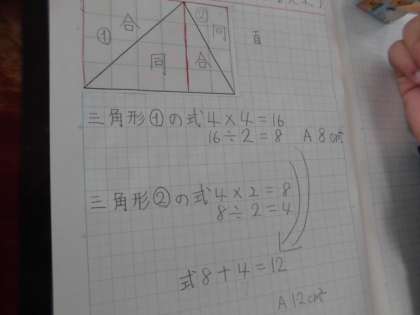 ① 合 ② 同
同 合
三角形①の式 4×4=16
16÷2=8 A 8cm²
三角形②の式 4×2=8
8÷2=4
式 8+4=12
A 12cm²